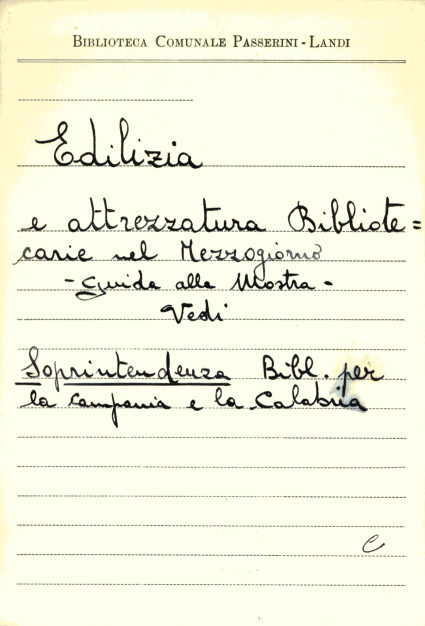 BIBLIOTECA COMUNALE PASSERINI - LANDI
Edilizia
e attrezzatura Bibliote=
carie nel Mezzogiorno
- Guida alla Mostra -
Vedi
Soprintendenza Bibl. per
la Campania e la Calabria
C